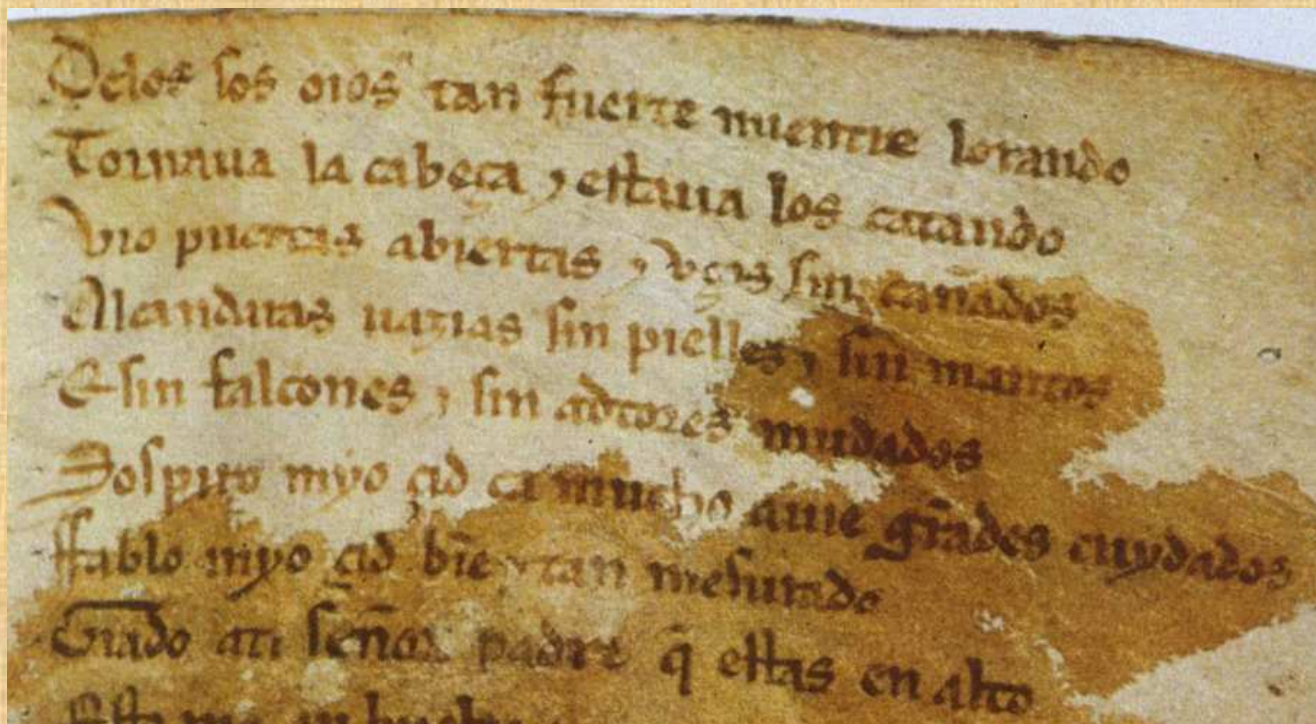 Delos sos oios tan fuerte mientre lorando
Tornaua la cabeça ⁊ estaua los catando
Vio puertas abiertas ⁊ vços sin cañados
Alcandaras uazias sin pielles ⁊ sin mantos
E sin falcones ⁊ sin adtores mudados
Sospiro myo çid ca mucho auie grãdes cuydados
Ffablo myo çid bie͂ ⁊ tan mesurado
Grado ati señor padre q̃ estas en alto
Esto me